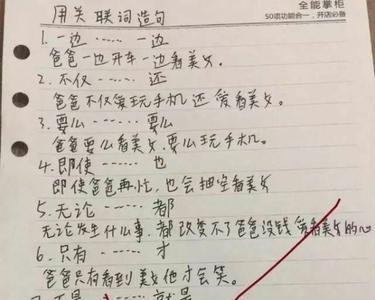 全能掌柜
50项功能合一，开店必备
用关联词造句
1. 一边 …… 一边
爸爸一边开车一边看美女。
2. 不仅 …… 还
爸爸不仅爱玩手机还爱看美女。
3. 要么 …… 要么
爸爸要么看美女，要么玩手机。
4. 即使 …… 也
即使爸爸再忙，也会抽空看美女
5. 无论 …… 都
无论发生什么事，都改变不了爸爸没钱爱看美女的心
6. 只有 …… 才
爸爸只有看到美女他才会笑。
不是 …… 就是